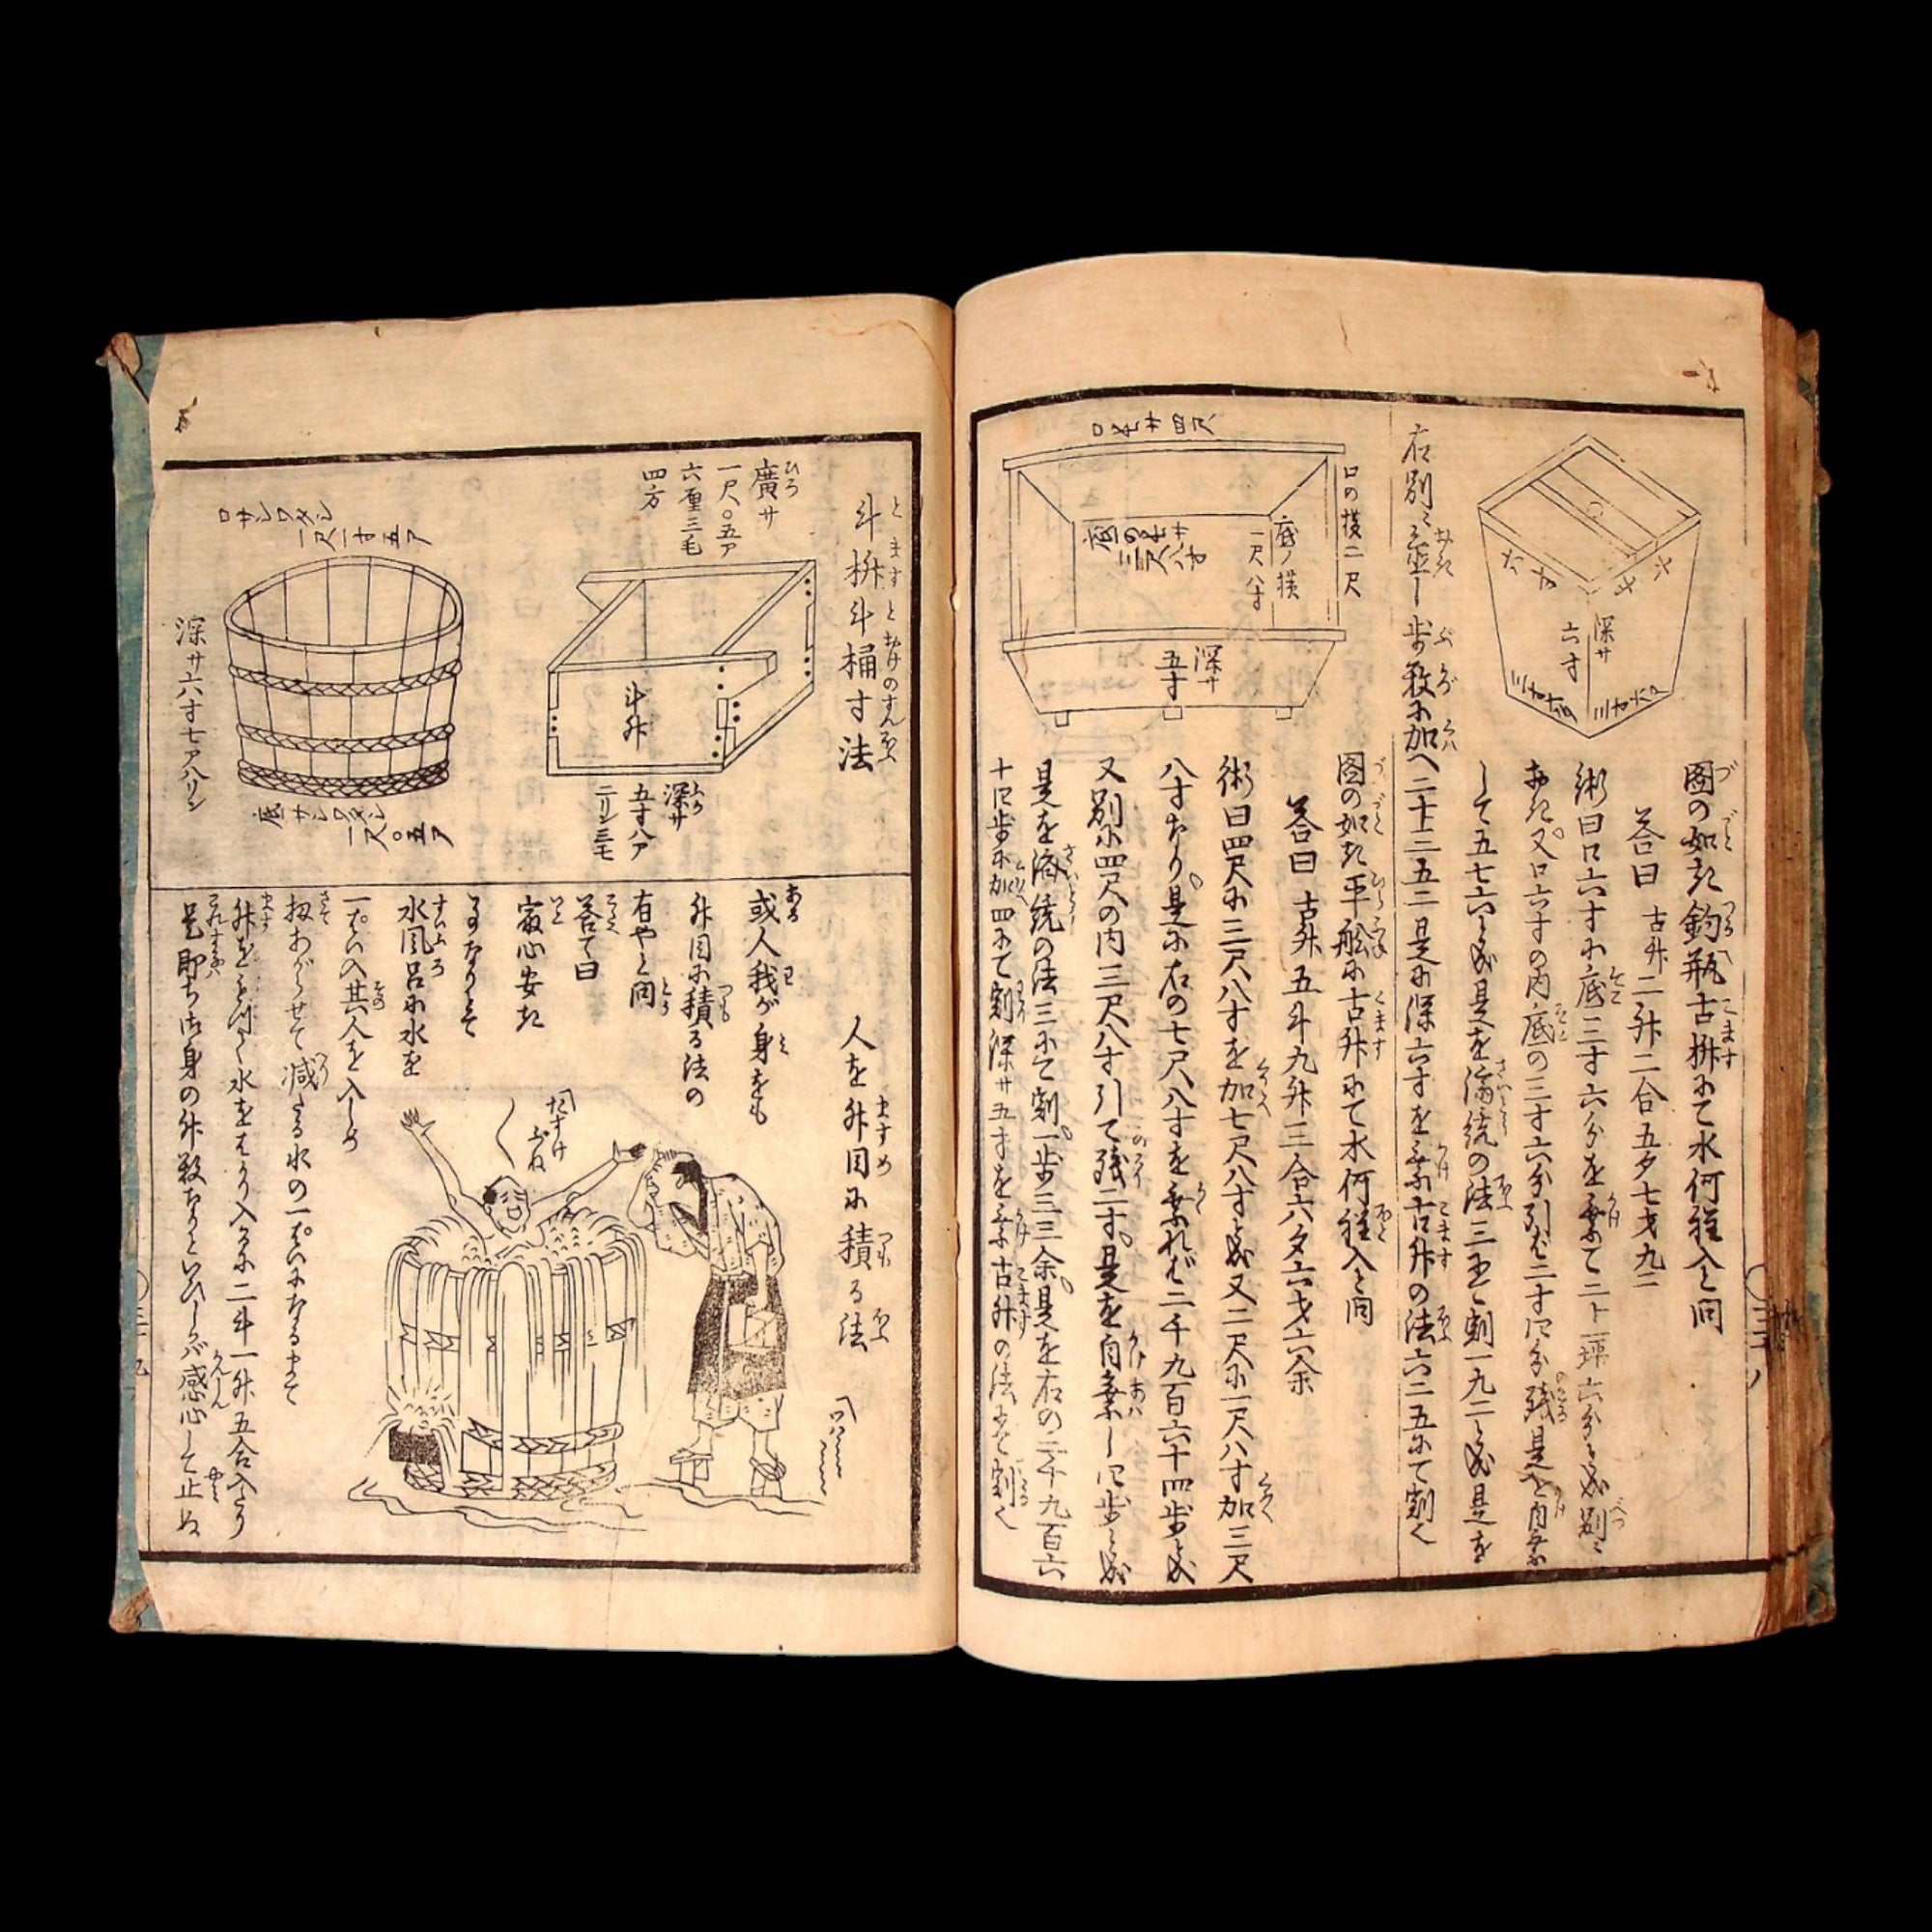 六寸
六寸
深サ
六寸
三寸六分
三寸六分
図の如き釣瓶古枡にて水何程入と問
答曰 古升二升二合五夕七才九二
術曰口六寸に底三寸六分を乗て二十一坪六分と成別に
おき又口六寸の内底の三寸六分引ば二寸四分残是を自乗
して五七六と成是を済統の法三にて割一九二と成是を
右別に置し歩数に加へ二十三五二是に深六寸を乗古升の法六二五にて割く
口長サ四尺
口の横二尺
底の長サ
三尺八寸
底ノ横
一尺八寸
深サ
五寸
図の如き平船に古升にて水何程入と問
答曰 古升五斗九升三合六夕六才六余
術曰四尺に三尺八寸を加七尺八寸と成又二尺に一尺八寸加三尺
八寸なり是に右の七尺八寸を乗れば二千九百六十四歩と成
又別に四尺の内三尺八寸引て残二寸是を自乗し四歩と成
是を済統の法三にて割一歩三三余是を右の二千九百六
十四歩に加四にて割深サ五寸を乗古升の法にて割く
斗枡斗桶寸法
廣サ
一尺〇五ア
六厘三毛
四方
斗升
深サ
五寸八ア
二リン三毛
口サシワタシ
一尺一寸五ア
深サ六寸七ア八リン
底サシワタシ
一尺〇五ア
人を升目に積る法
或人我が身をも
升目に積る法の
有やと問
答て曰
最心安き
事なりとて
水風呂に水を
一ぱい入其人を入しめ
扨あがらせて減たる水の一ぱいになるまで
升を以て水をはかり入るに二斗一升五合入たり
是即ち御身の升数なりといひしが感心して止ぬ
たすけ
ぶね